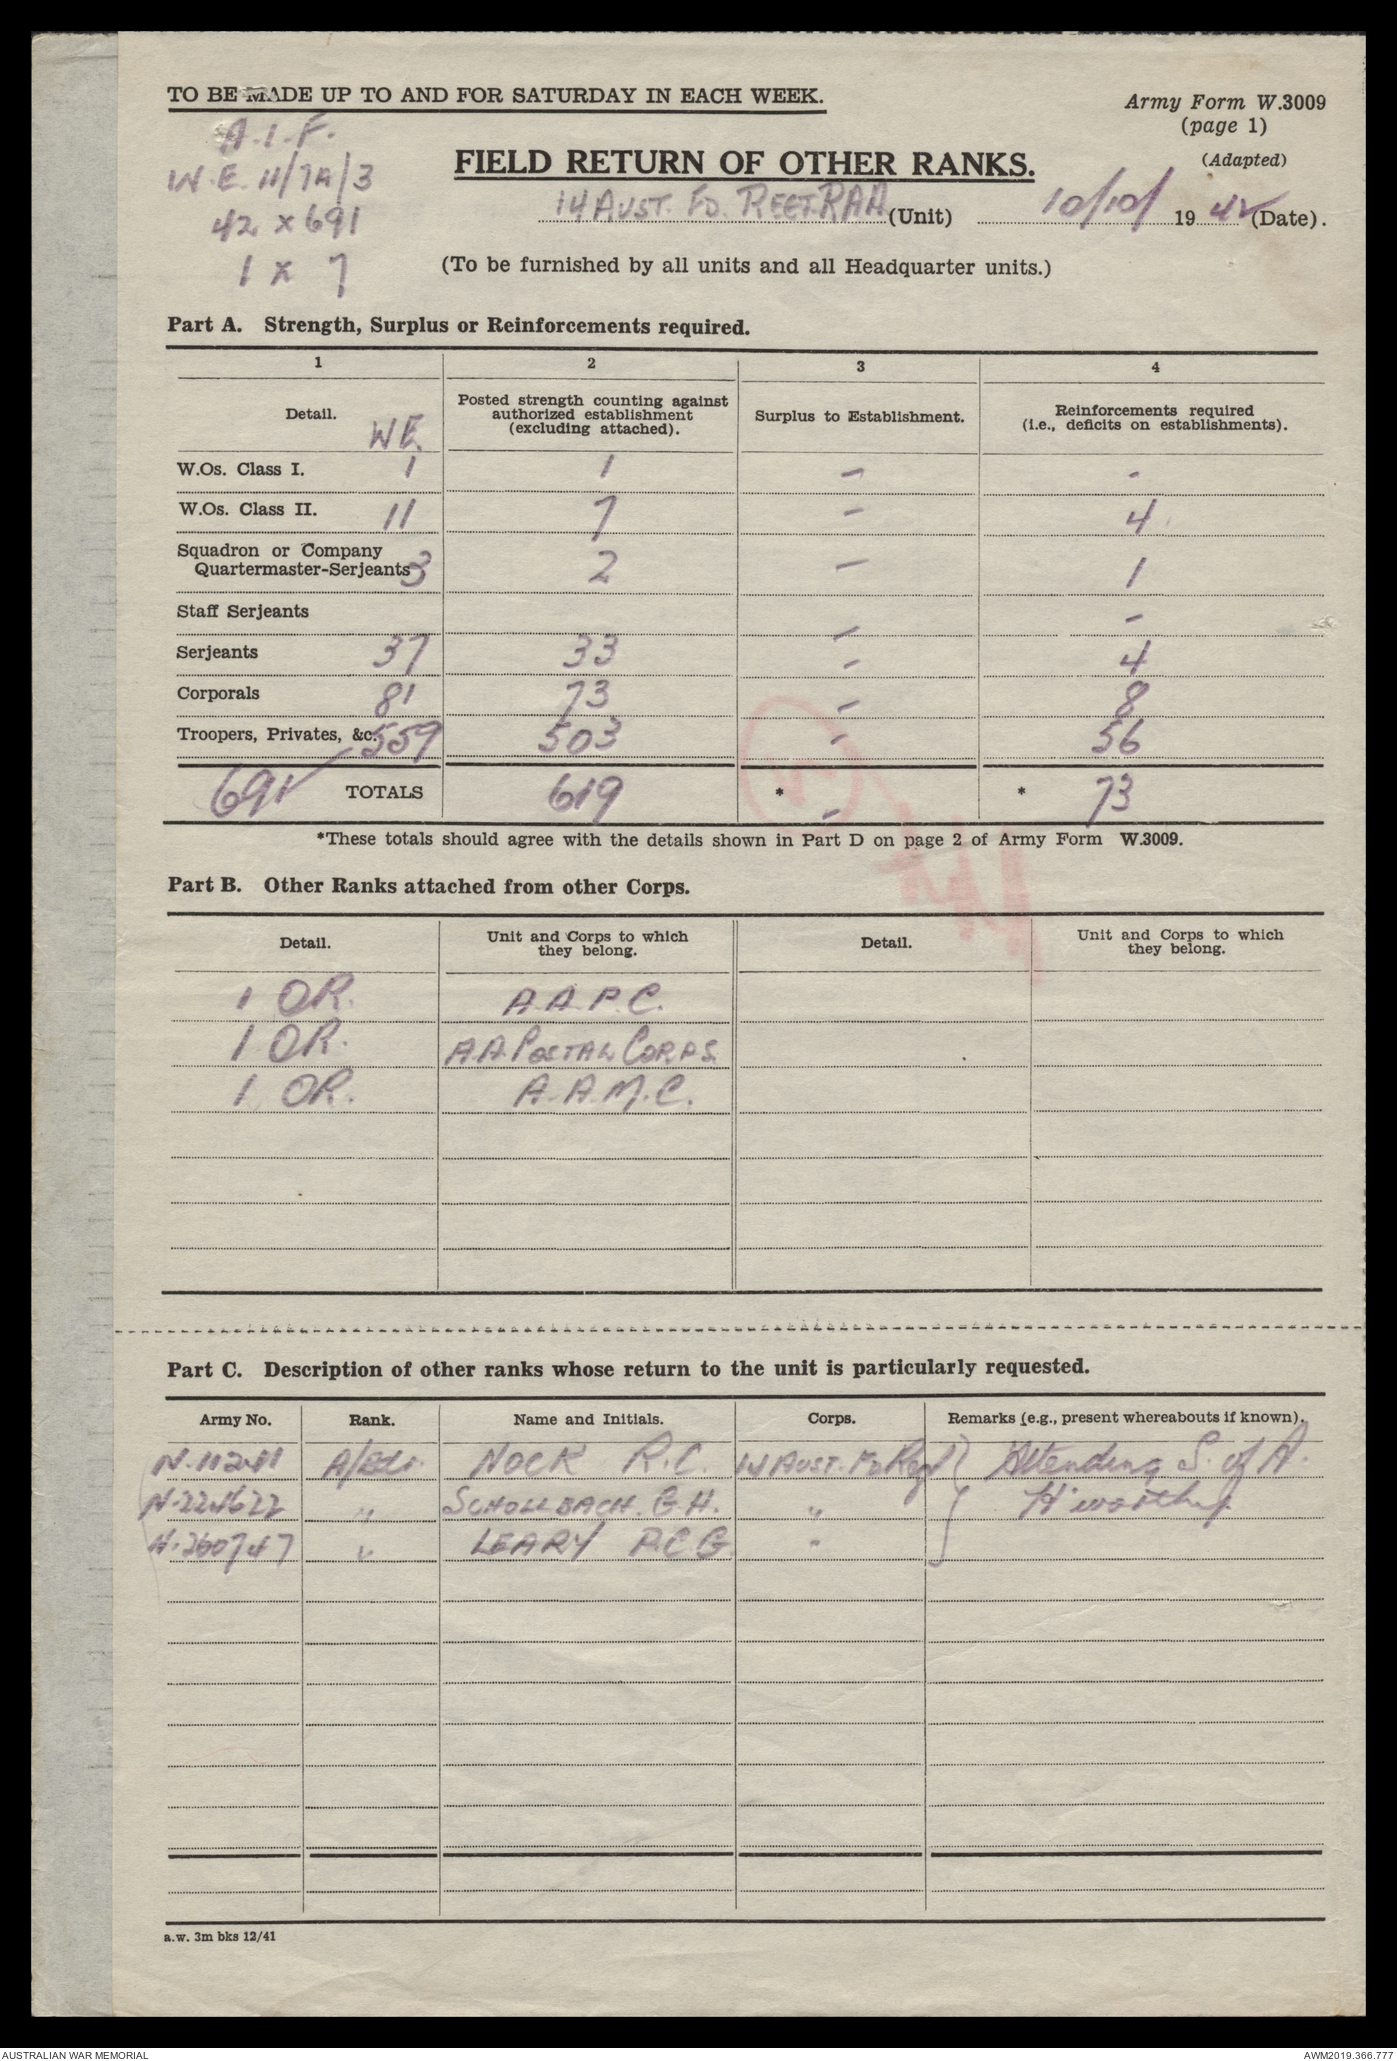 TO BE MADE UP TO AND FOR SATURDAY IN EACH WEEK.
Army Form W.3009
(page 1)
(Adapted)
A.I.F.
W.E. 11/7A/3
42 x 691
1 x 7
FIELD RETURN OF OTHER RANKS.
14 AUST. FD. REGT. RAA (Unit) 10/10/ 19 42 (Date).
(To be furnished by all units and all Headquarter units.)
Part A. Strength, Surplus or Reinforcements required.
1 2 3 4
Detail. WE. Posted strength counting against authorized establishment (excluding attached). Surplus to Establishment. Reinforcements required (i.e., deficits on establishments).
W.Os. Class I. 1 1 - -
W.Os. Class II. 11 7 - 4
Squadron or Company
Quartermaster-Serjeants 3 2 - 1
Staff Serjeants - -
Serjeants 37 33 - 4
Corporals 81 73 - 8
Troopers, Privates, &c. 559 503 - 56
691 TOTALS 619 * - * 73
*These totals should agree with the details shown in Part D on page 2 of Army Form W.3009.
Part B. Other Ranks attached from other Corps.
Detail. Unit and Corps to which they belong. Detail. Unit and Corps to which they belong.
1 OR. A.A.P.C.
1 OR. A.A. POSTAL CORPS
1 OR. A.A.M.C.
Part C. Description of other ranks whose return to the unit is particularly requested.
Army No. Rank. Name and Initials. Corps. Remarks (e.g., present whereabouts if known).
NOCK R.C. 14 AUST. FD Regt Attending S. of A.
N.224622 " SCHOLLBACH. G.H. " H'worthy
N.260747 " LEARY P.C.G. "
a.w. 3m bks 12/41
AUSTRALIAN WAR MEMORIAL
AWM2019.366.777